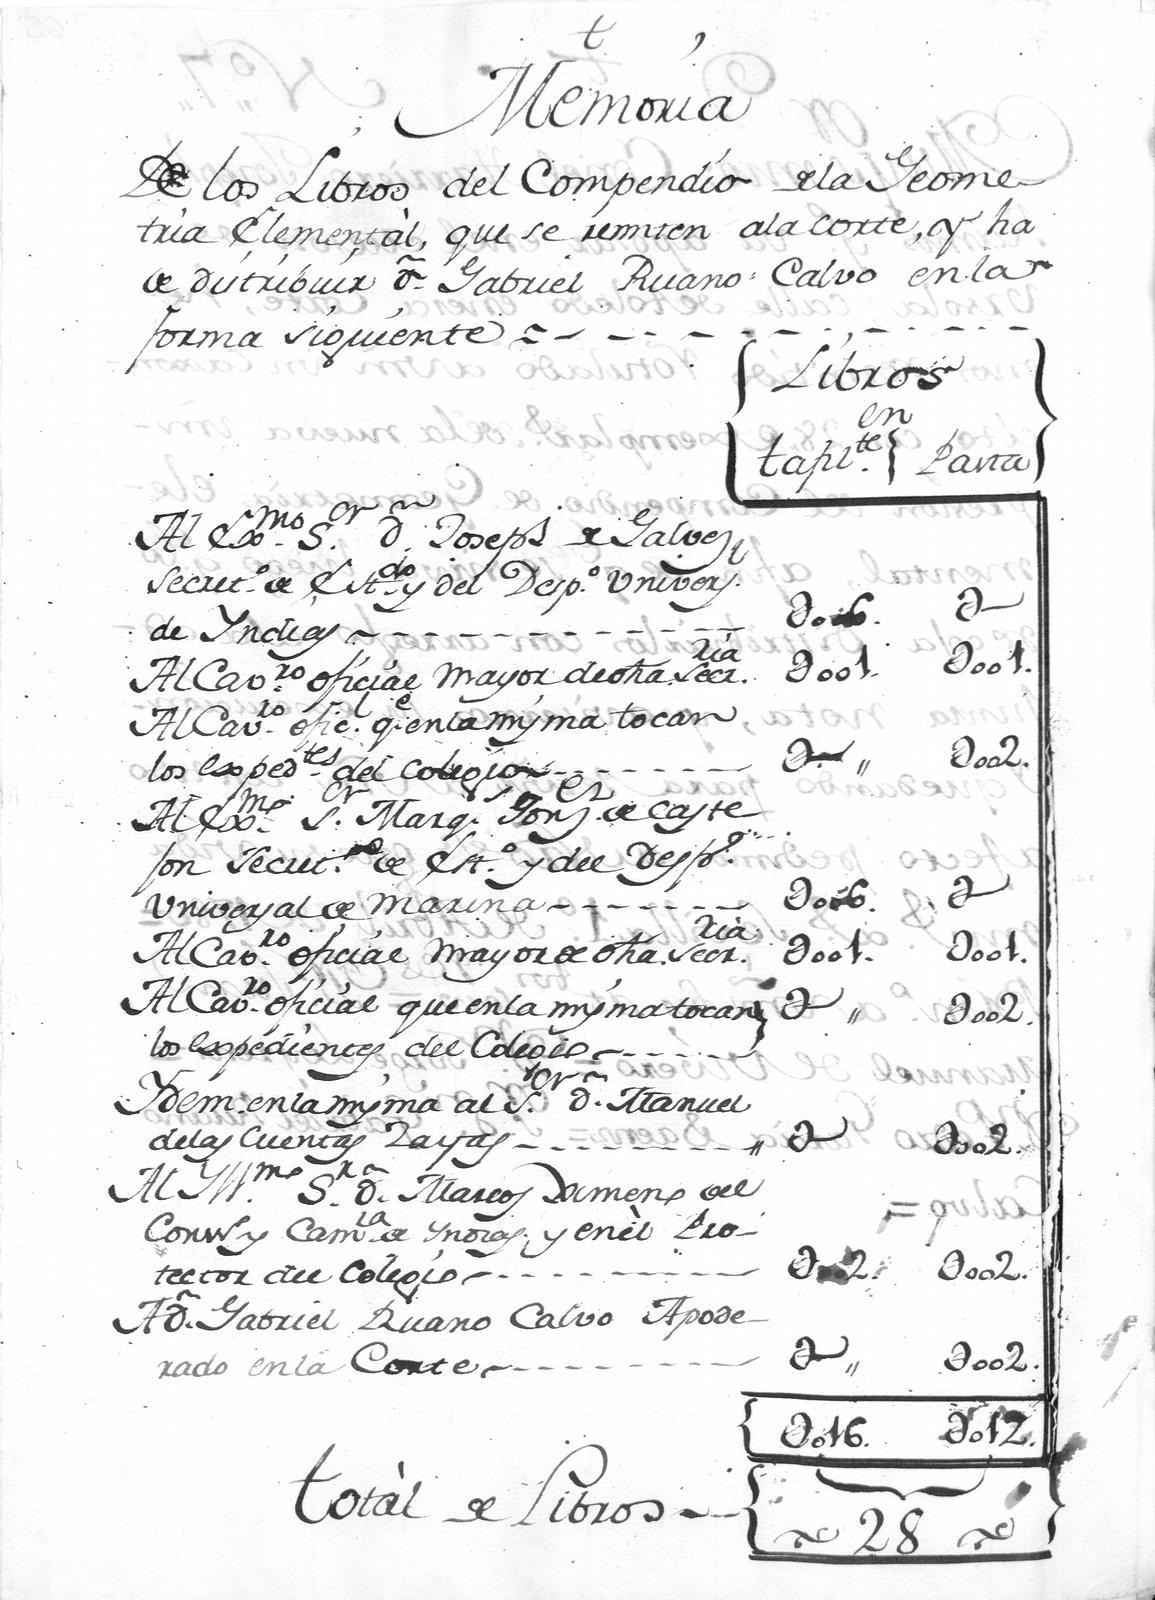 t
Memoria
De los Libros del Compendio de la Geome-
tria Elementàl, que se remiten ala corte, y ha
de distribuir dn. Gabriel Ruano Calvo en la
forma siguiente
Libros
en
tapl.te Pasta
Al Exmo. Sor. dn. Joseph de Galvez
Secret.o de Estdo. y del Desp.o Univers.
de Yndias 006.
Al Cavro. oficial mayor de dha. Secrria. 001. 001.
Al Cavro. oficl. qe. en la misma tocan
los expedtes. del colegio " 002.
Al Exmo. Sor. Marqs. Gonz.ez de Caste
jon Secret.o de Est.o y del Desp.o
Universal de Marina 006.
Al Cavro. oficial mayor de dha. Secrria. 001. 001.
Al Cavro. oficial que en la misma tocan " 002.
los expedientes del Colegio
Ydem. en la misma al Sor. dn. Manuel
delas Cuentas Zayas " 002.
Al Yllmo. Sr. dn. Marcos Ximeno del
Consº. y Camra. de Yndias, y en èl Pro-
tector del Colegio 002. 002.
A dn. Gabriel Ruano Calvo Apode-
rado en la Corte " 002.
016. 012.
totàl de Libros 28